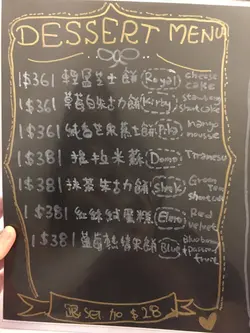 DESSERT MENU
1$36 | 輕盈芝士餅 (Royal) cheese cake
1$36 | 草莓白朱古力餅 (Kirby) strawberry shortcake
1$36 | 純香芒果慕士餅 mango mousse
1$38 | 提拉米蘇 Tiramisu
1$38 | 抹茶朱古力餅 Green Tea
1$38 | 紅絲絨蛋糕 (Elmo) Red Velvet
1$38 | 藍莓熱情果餅 (Blue) Blueberry & passion fruit
SET $28